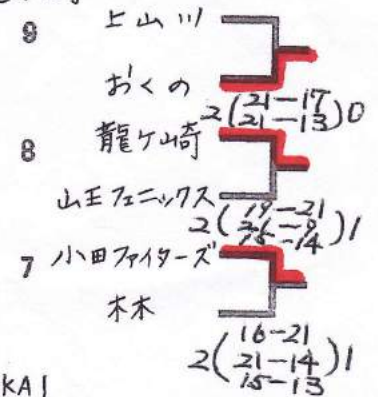 9 上山川
おくの
2(21-17
21-13)0
8 龍ケ崎
山王フェニックス
2(19-21
21-9
15-14)1
7 小田ファイターズ
木木
2(16-21
21-14
15-13)1
KAI